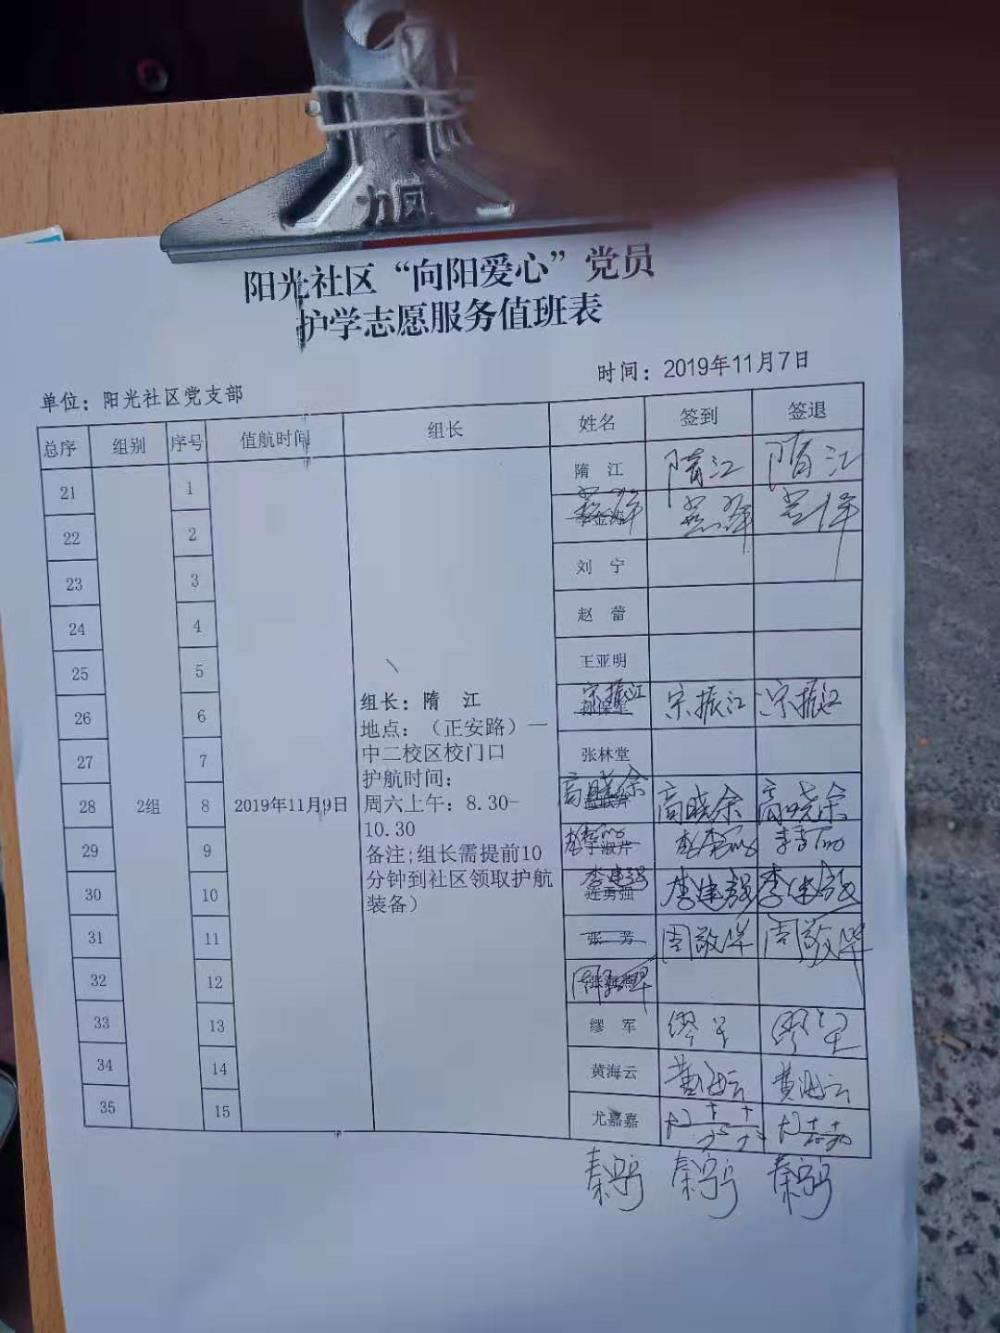 力风
阳光社区“向阳爱心”党员
护学志愿服务值班表
时间：2019年11月7日
单位：阳光社区党支部
总序 组别 序号 值航时间 组长 姓名 签到 签退
21 1 隋 江 隋江 隋江
22 2
23 3 刘 宁
24 4 赵 蕾
25 5 王亚明
26 6 宋振江 宋振江 宋振江
27 7 张林堂
28 2组 8 2019年11月9日 高晓余 高晓余 高晓余
29 9
30 10 李建强 连勇强 李建强 李建强
31 11 张 芳 周敬华 周敬华
32 12
33 13 缪 军 缪军 缪军
34 14 黄海云 黄海云 黄海云
35 15 尤嘉嘉 尤嘉嘉 尤嘉嘉
组长：隋 江
地点：（正安路）一
中二校区校门口
护航时间：
周六上午：8.30-
10.30
备注;组长需提前10
分钟到社区领取护航
装备）
秦宁 秦宁 秦宁